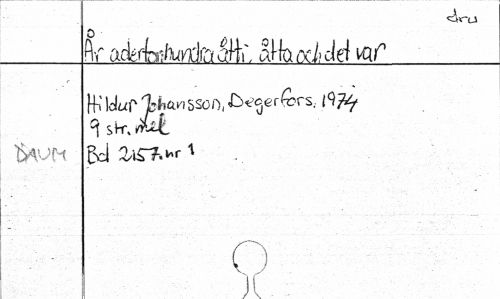 dru
År adertonhundraåtti, åtta och det var
Hildur Johansson, Degerfors, 1974
9 str. mel
DAUM Bd 2157. nr 1